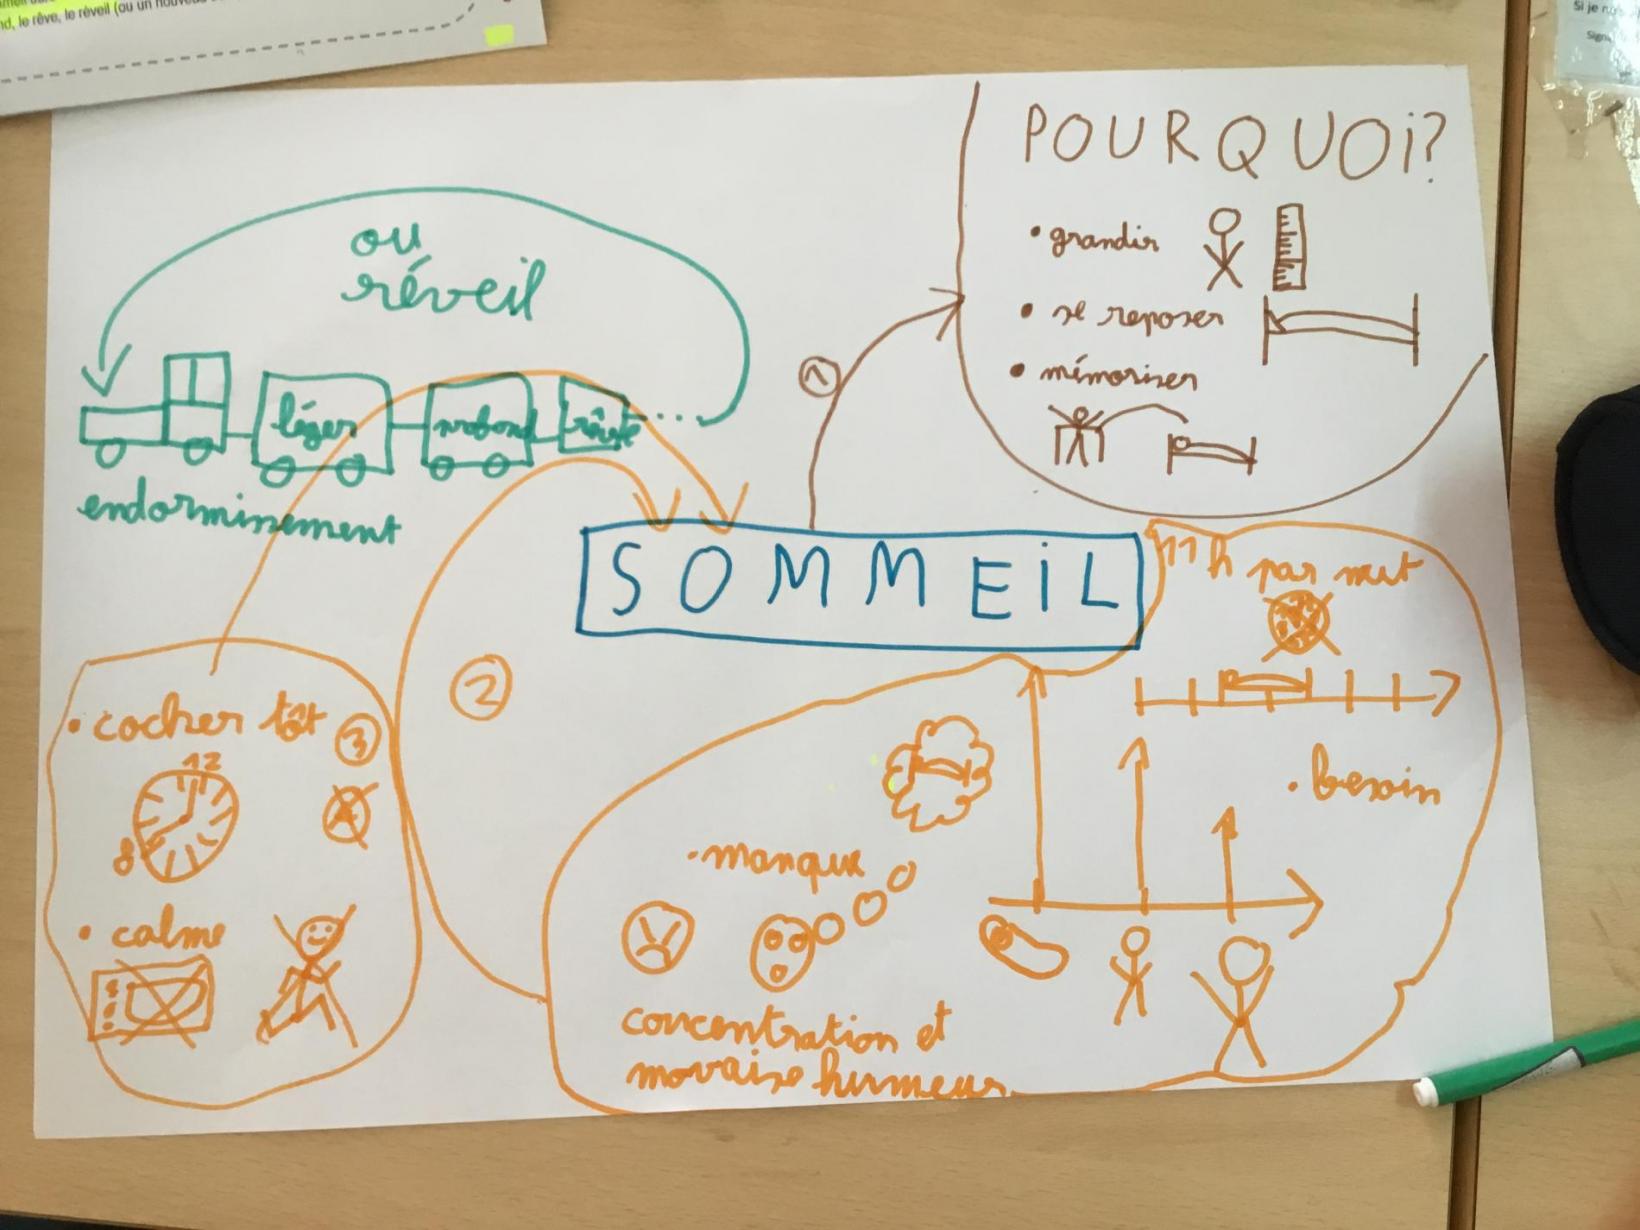 nd, le rêve, le réveil (ou un nouveau
Si je
POURQUOi?
• grandir
• se reposer
• mémoriser
1
ou
réveil
léger
profond
rêve
endormissement
SOMMEiL
11h par nuit
• besoin
2
• cocher tôt
3
12
8
• calme
• manque
concentration et
movaise humeur